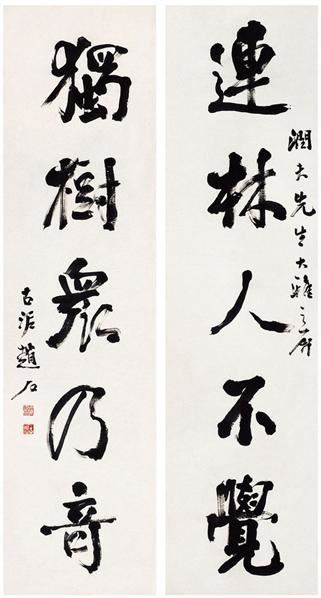 潤夫先生大雅
連林人不覺
獨樹衆乃奇
古泥趙石